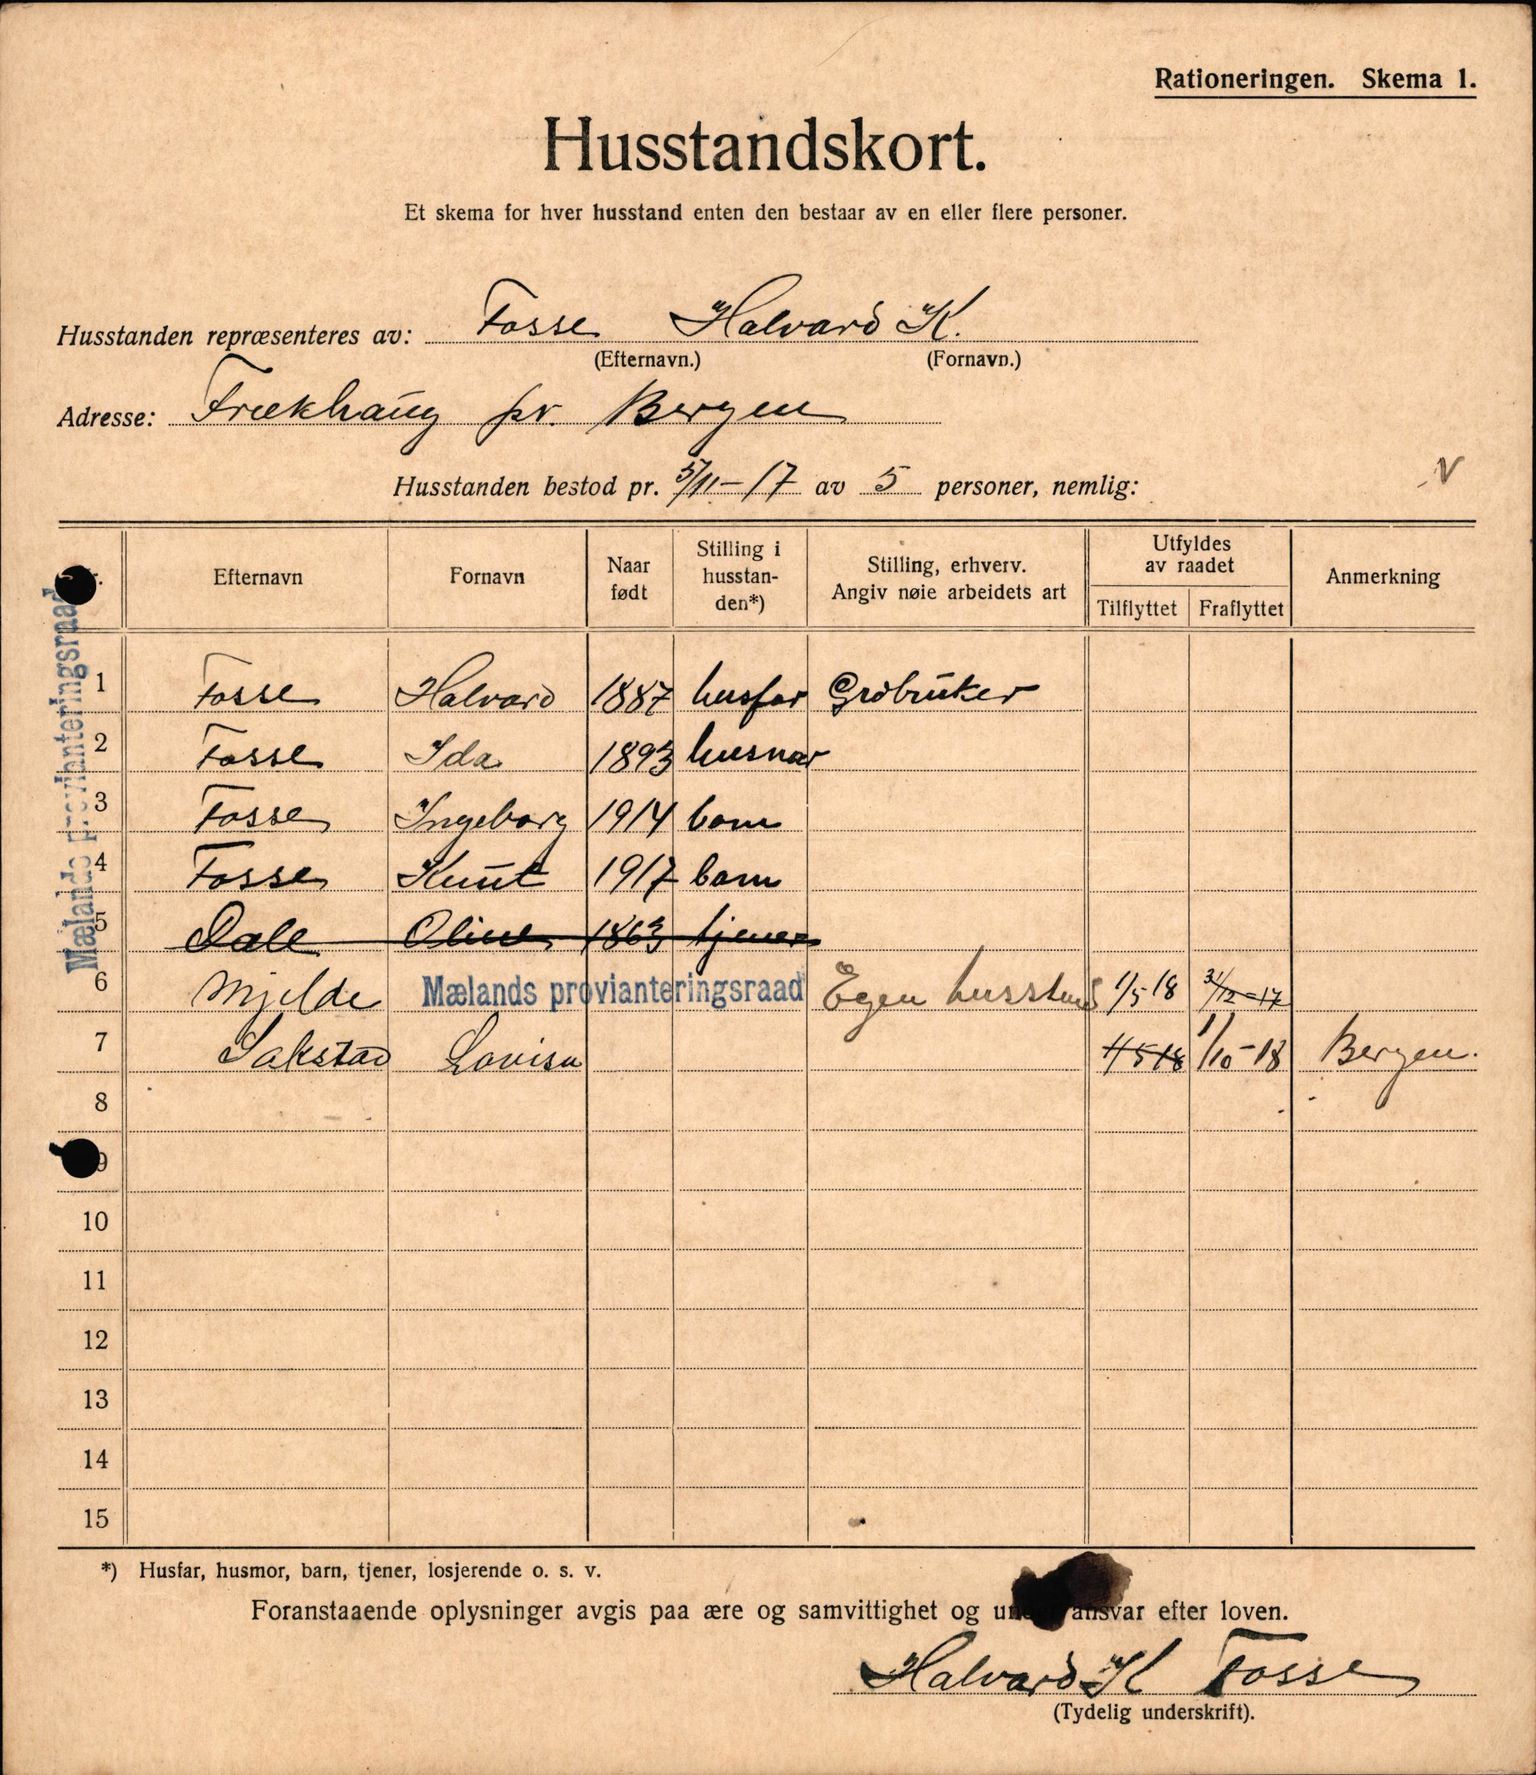 Rationeringen. Skema 1.
Husstandskort.
Et skema for hver husstand enten den bestaar av en eller flere personer.
Husstanden repræsenteres av: Fosse Halvard K.
(Efternavn.) (Fornavn.)
Adresse: Frækhaug pr. Bergen
Husstanden bestod pr. 5/11-17 av 5 personer, nemlig:
Efternavn Fornavn Naar født Stilling i husstan-den*) Stilling, erhverv. Angiv nøie arbeidets art Utfyldes av raadet Tilflyttet Fraflyttet Anmerkning
Mælands provianteringsraad
1 Fosse Halvard 1887 husfar Grdbruker
2 Fosse Ida 1893 husmor
3 Fosse Ingeborg 1914 barn
4 Fosse Knut 1917 barn
5 Dale Oline 1863 tjener
6 Mjelde Mælands provianteringsraad Egen husstand 1/5 18 31/12-17
7 Sakstad Lovisa 1/5 18 1/10-18 Bergen.
8
9
10
11
12
13
14
15
*) Husfar, husmor, barn, tjener, losjerende o. s. v.
Foranstaaende oplysninger avgis paa ære og samvittighet og under ansvar efter loven.
Halvard K Fosse
(Tydelig underskrift).